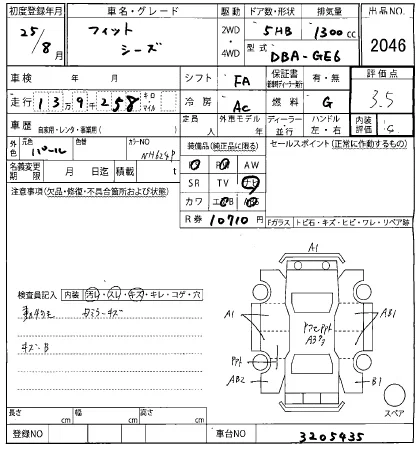 初度登録年月 車名・グレード 駆動 ドア数・形状 排気量 出品NO.
25/8月 フィット シーズ 2WD・4WD 5HB 1300cc 2046
型式 DBA-GE6
車検 年 月 シフト FA 保証書 有・無 評価点
走行 13万9千258 キロ マイル 冷房 AC 燃料 G 3.5
車歴 自家用・レンタ・事業用( ) 定員 人 外車モデル 年 ディーラー 並行 ハンドル 左・右 内装評価
外色 元色 パール 色替 カラーNO NH624P 装備品(純正品に限る) セールスポイント(正常に作動するもの)
名義変更期限 月 日迄 積載 t AW
注意事項(欠品・修復・不具合箇所および状態) SR TV ナビ
カワ
R券 10710円 Fガラス トビ石・キズ・ヒビ・ワレ・リペア跡
検査員記入 内装 汚レ・スレ・キズ・キレ・コゲ・穴
キズ・B
A1
A1 AB1
AB2 B1
スペア
長さ cm 幅 cm 高さ cm
登録NO 車台NO 3205435